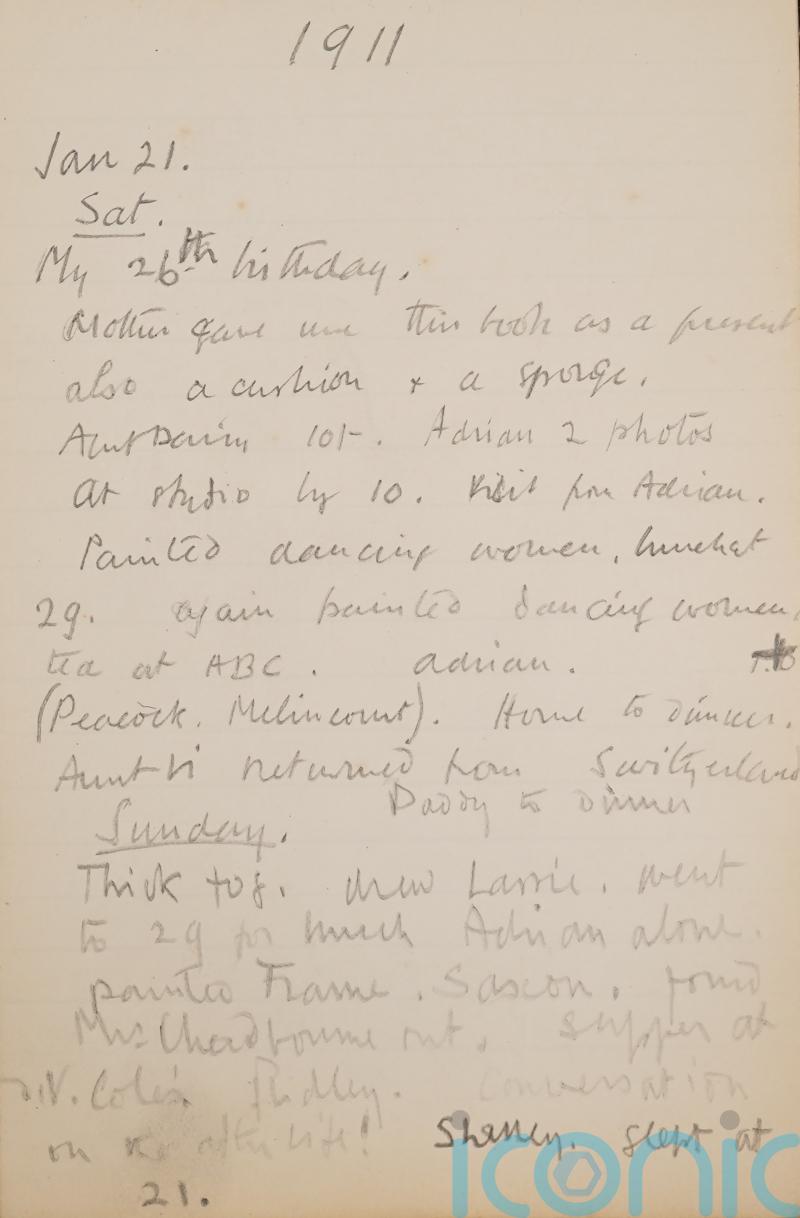 1911
Jan 21.
Sat.
My 26th birthday.
Mother gave me this book as a present
also a cushion & a sponge.
Aunt Daisy 10/-. Adrian 2 photos
at studio by 10. Visit from Adrian.
Painted dancing women, lunch at
29. again painted dancing women,
tea at ABC. Adrian.
(Peacock. Melincourt). Home to dinner.
Aunt Vi returned from Switzerland
Daddy to dinner
Sunday.
Thick fog. drew Lassie. went
to 29 for lunch Adrian alone.
painted Frame. Saxon. found
Mrs Chadbourne out. Supper at
Cole's Ridley. Conversation
on the after life! Shelley. slept at
21.
iconic